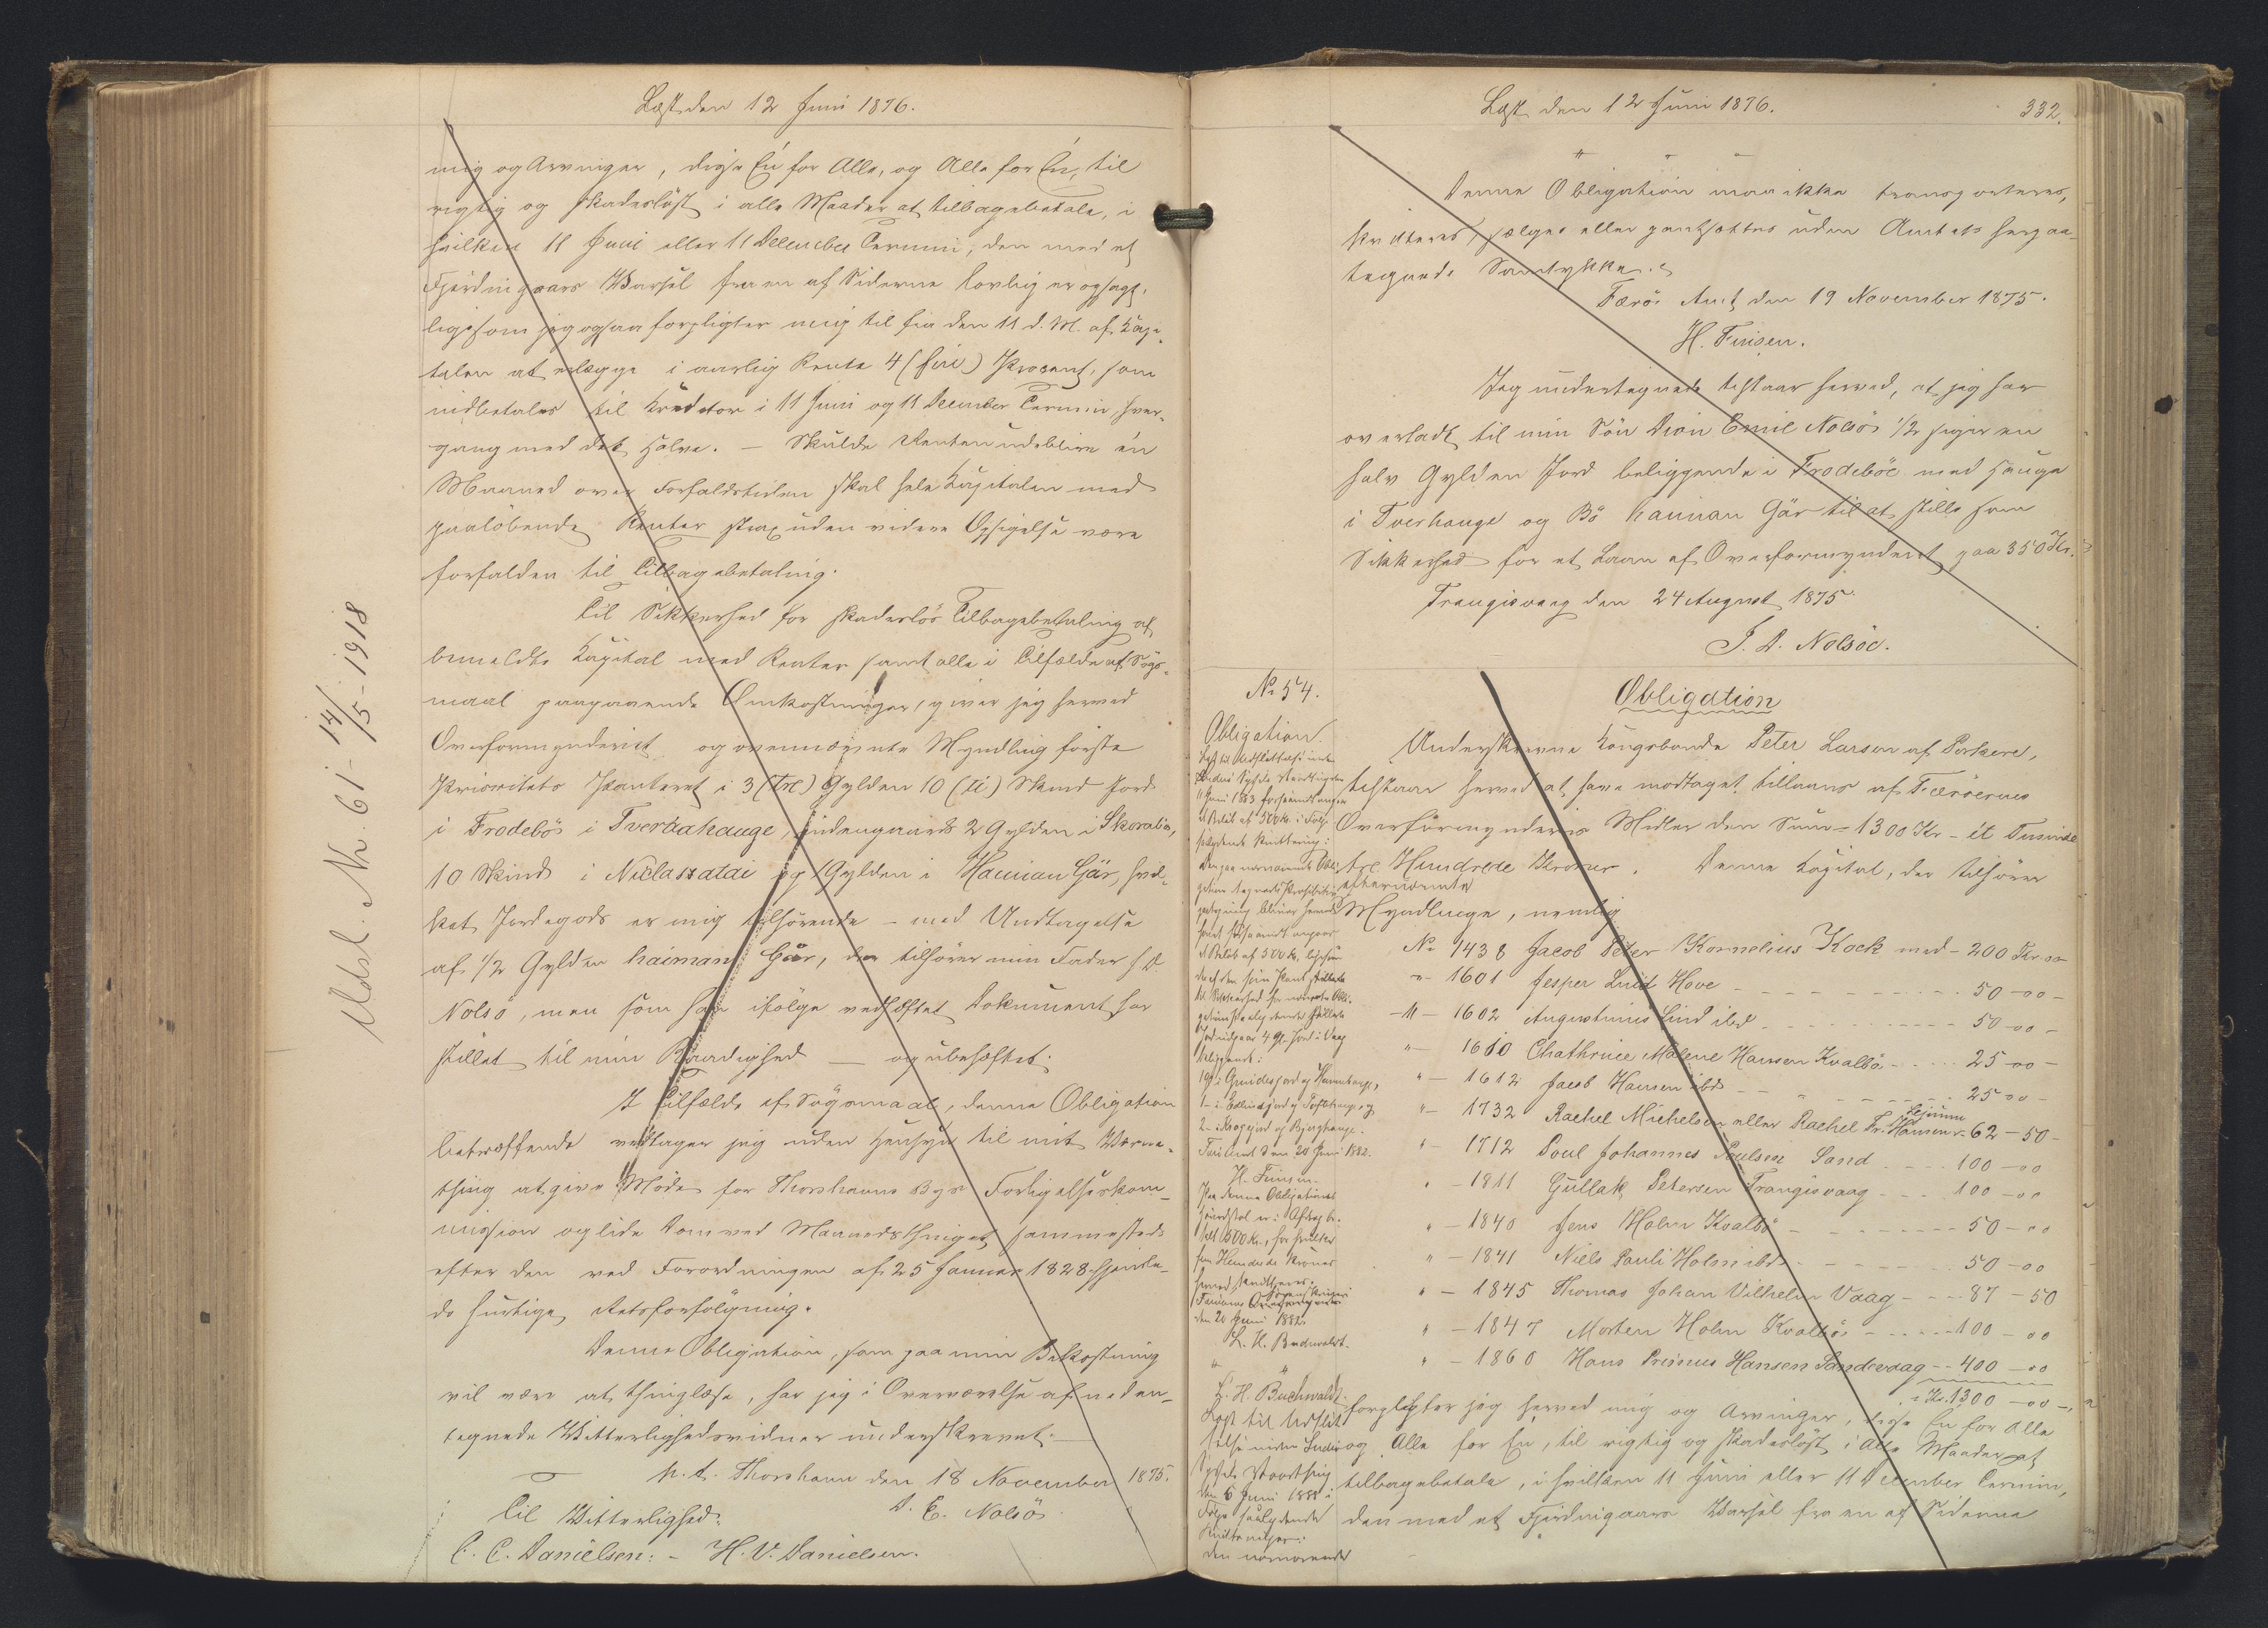 Læst den 12 Juni 1876.
mig og Arvinger, disse Én for Alle, og Alle for Én, til
rigtig og skadesløst i alle Maader at tilbagebetale, i
hvilken 11 Juni eller 11 December Termin, den med et
Fjerdingaars Varsel fra en af Siderne lovlig er opsagt,
ligesom jeg ogsaa forpligter mig til fra den 11 d. M. af Kapi-
talen at erlægge i aarlig Rente 4 (fire) Procent, som
indbetales til Kreditor i 11 Juni og 11 December Termin, hver-
gang med det Halve. — Skulde Renten udeblive én
Maaned over Forfaldstiden skal hele Kapitalen med
paaløbende Renter strax uden videre Opsigelse være
forfalden til Tilbagebetaling.
Til Sikkerhed for skadesløs Tilbagebetaling af
bemeldte Kapital med Renter samt alle i Tilfælde af Søgs-
maal paagaaende Omkostninger, giver jeg herved
Overformynderiet og ovennævnte Myndling første
Prioritets Panteret i 3 (tre) Gylden 10 (ti) Skind Jord
i Frodebö i Tverhahauge, indengaards 2 Gylden i Skorabö,
10 Skind i Niclassatdi og 1 Gylden i Hannan Gär, hvil-
ket Jordegods er mig tilhørende — med Undtagelse
af 1/2 Gylden haiman Gär, der tilhører min Fader J. D.
Nolsö, men som han ifølge vedhæftet Dokument har
stillet til min Raadighed — og ubehæftet.
I Tilfælde af Søgsmaal, denne Obligation
betræffende vedtager jeg uden Hensyn til mit Værne-
thing at give Møde for Thorshavns Bys Forligelseskom-
mission og lide Dom ved Maanedsthinget sammesteds
efter den ved Forordningen af 25 Januar 1828 hjemle-
de hurtige Retsforfølgning.
Denne Obligation, som paa min Bekostning
vil være at thinglæse, har jeg i Overværelse af neden-
tegnede Vitterlighedsvidner underskrevet.
p. t. Thorshavn den 18 November 1875.
Til Vitterlighed: D. E. Nolsö
C. C. Danielsen: - H. V. Danielsen.
Udsl. Nr. 61 - 14/5 - 1918
Læst den 12 Juni 1876.
332.
" " "
Denne Obligation maa ikke transporteres,
kvitteres, sælges eller pantsættes uden Amtets herpaa
tegnede Samtykke.
Færö Amt den 19 November 1875.
H. Finsen.
Jeg undertegnede tilstaar herved, at jeg har
overladt til min Sön Dion Emil Nolsö 1/2 siger en
halv Gylden Jord beliggende i Frodeböe med Hauga
i Tverhauge og Bö hannan Gär til at stille som
Sikkerhed for et Laan af Overformynderiet paa 350 Kr.
Trangisvaag den 24 August 1875.
J. D. Nolsöe.
No 54.
Obligation
Læst til Udslettelse inden
Suderö Syssels Vaarthing den
11 Juni 1883 forsaavidt angaar
et Beløb af 500 Kr. i Følge
saalydende Kvittering:
Den paa nærværende Obli-
gation tegnede Prohibitiv-
paategning bliver herved
hævet forsaavidt angaar
et Beløb af 500 Kr., ligesom
til Sikkerhed for nævnte Obli-
beliggende:
Færö Amt den 20 Juni 1882.
H. Finsen.
Paa denne Obligations
Hovedstol er i Afdrag be-
talt 500 Kr., for hvilke
fem Hundrede Kroner
herved kvitteres.
den 20 Juni 1882.
L. H. Buchwaldt.
" "
L. H. Buchwaldt.
Læst til Udslet-
telse inden Suderö
Syssels Vaarthing
den 6 Juni 1888 i
Følge saalydende
Kvitteringer:
Den nærværende
Obligation
Underskrevne Kongsbonde Peter Larsen af Porkere,
tilstaar herved at have modtaget tillaans af Færöernes
Overformynderis Midler den Sum - 1300 Kr - ét Tusinde
tre Hundrede Kroner. Denne Kapital, der tilhører
efternævnte
Myndlinge, nemlig
No 1438 Jacob Peter Kornelius Kock med - 200 Kr 00
" - 1601 Jesper Lind Hove - - - 50 - 00 -
- " - 1602 Augustinus Lind ibd - - - 50 - 00 -
" - 1610 Chathrine Malene Hansen Kvalbö - - - 25 - 00 -
" - 1612 Jacob Hansen ibd - - - 25 00 -
" - 1732 Rachel Michelsen eller Rachel Fr. Hansen - 62 - 50 -
" - 1712 Poul Johannes Poulsen Sand - - - 100 - 00
" - 1811 Gullak Petersen Trangisvaag - - - 100 - 00
" - 1840 Jens Holm Kvalbö - - - 50 - 00
" - 1841 Niels Pauli Holm ibd - - - 50 - 00
" - 1845 Thomas Johan Vilhelm Vaag - - - 87 - 50
" - 1847 Morten Holm Kvalbö - - - 100 - 00
" - 1860 Hans Hansen Sandevaag - - 400 - 00
Kr. 1300 - 00 -,
forpligter jeg herved mig og Arvinger, disse Én for Alle
og Alle for Én, til rigtig og skadesløst i alle Maader at
tilbagebetale, i hvilken 11 Juni eller 11 December Termin,
den med et Fjerdingaars Varsel fra en af Siderne